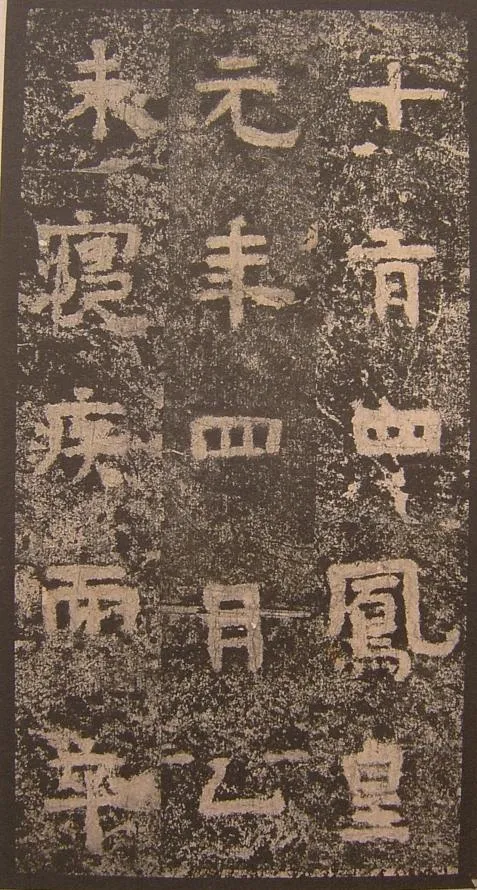 十有四鳳皇
元年四月乙
未寢疾而卒